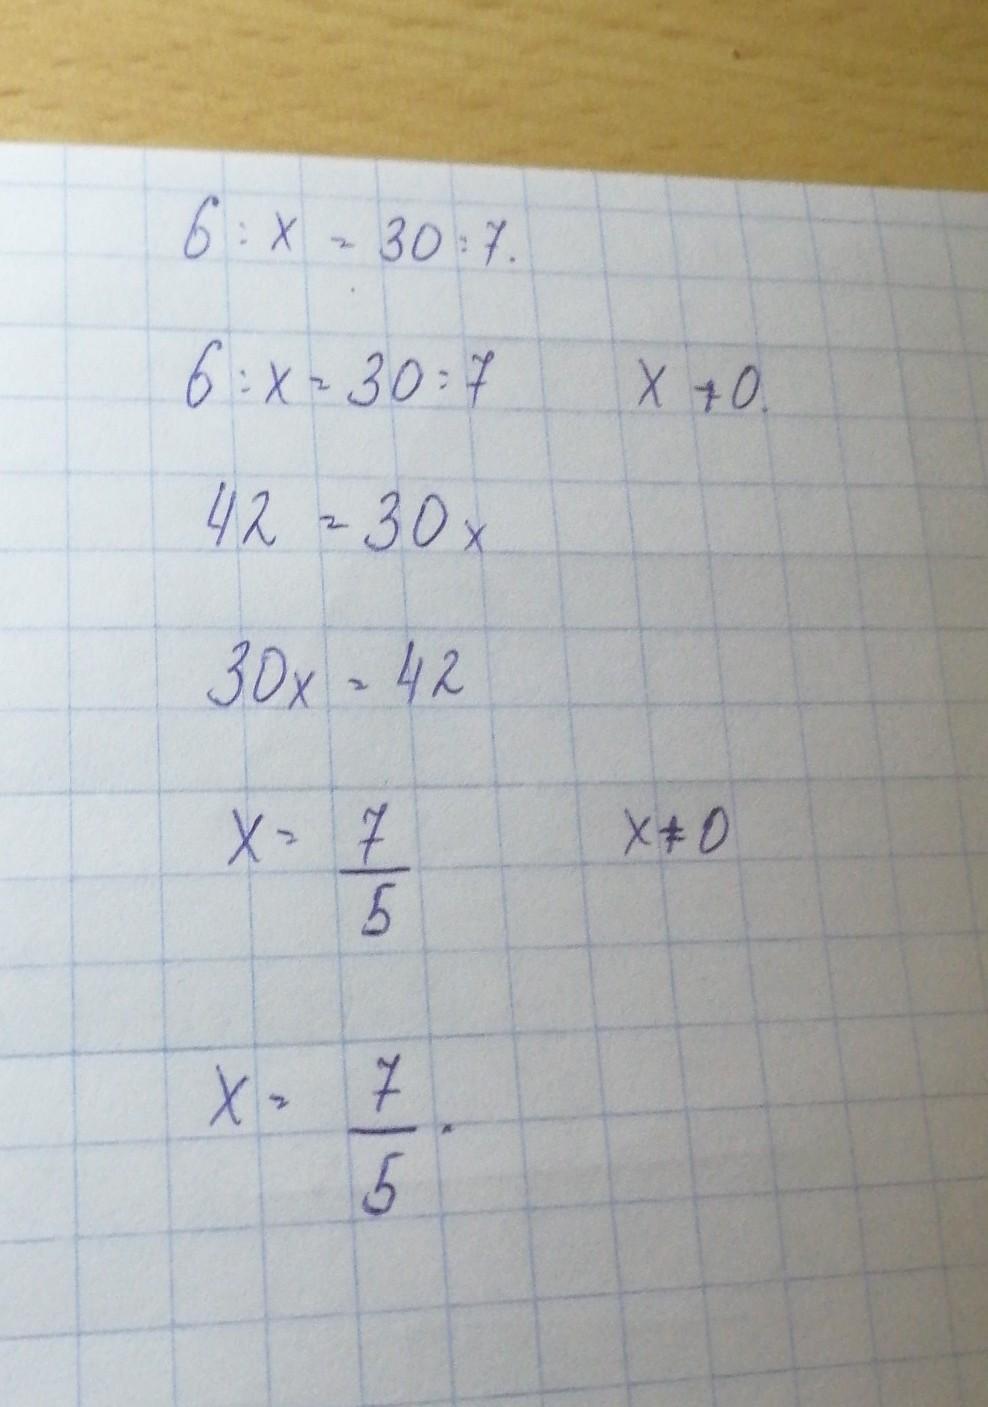 6 : x = 30 : 7.
6 : x = 30 : 7 x ≠ 0.
42 = 30x
30x = 42
x = 7/5 x ≠ 0
x = 7/5.